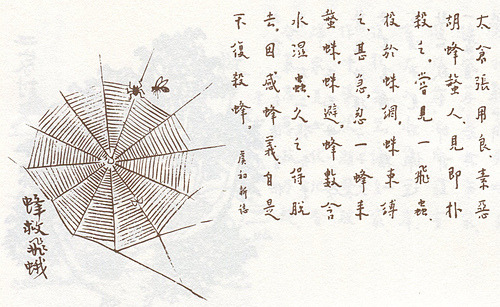 太倉張用良素惡
胡蜂螫人、見即扑
殺之。嘗見一飛蟲、
投於蛛網，蛛束縛
之、甚急。忽一蜂來
螫蛛。蛛避。蜂數含
水濕蟲、久之得脫
去。因感蜂義自是
不復殺蜂。
虞初新誌
蜂救飛蛾